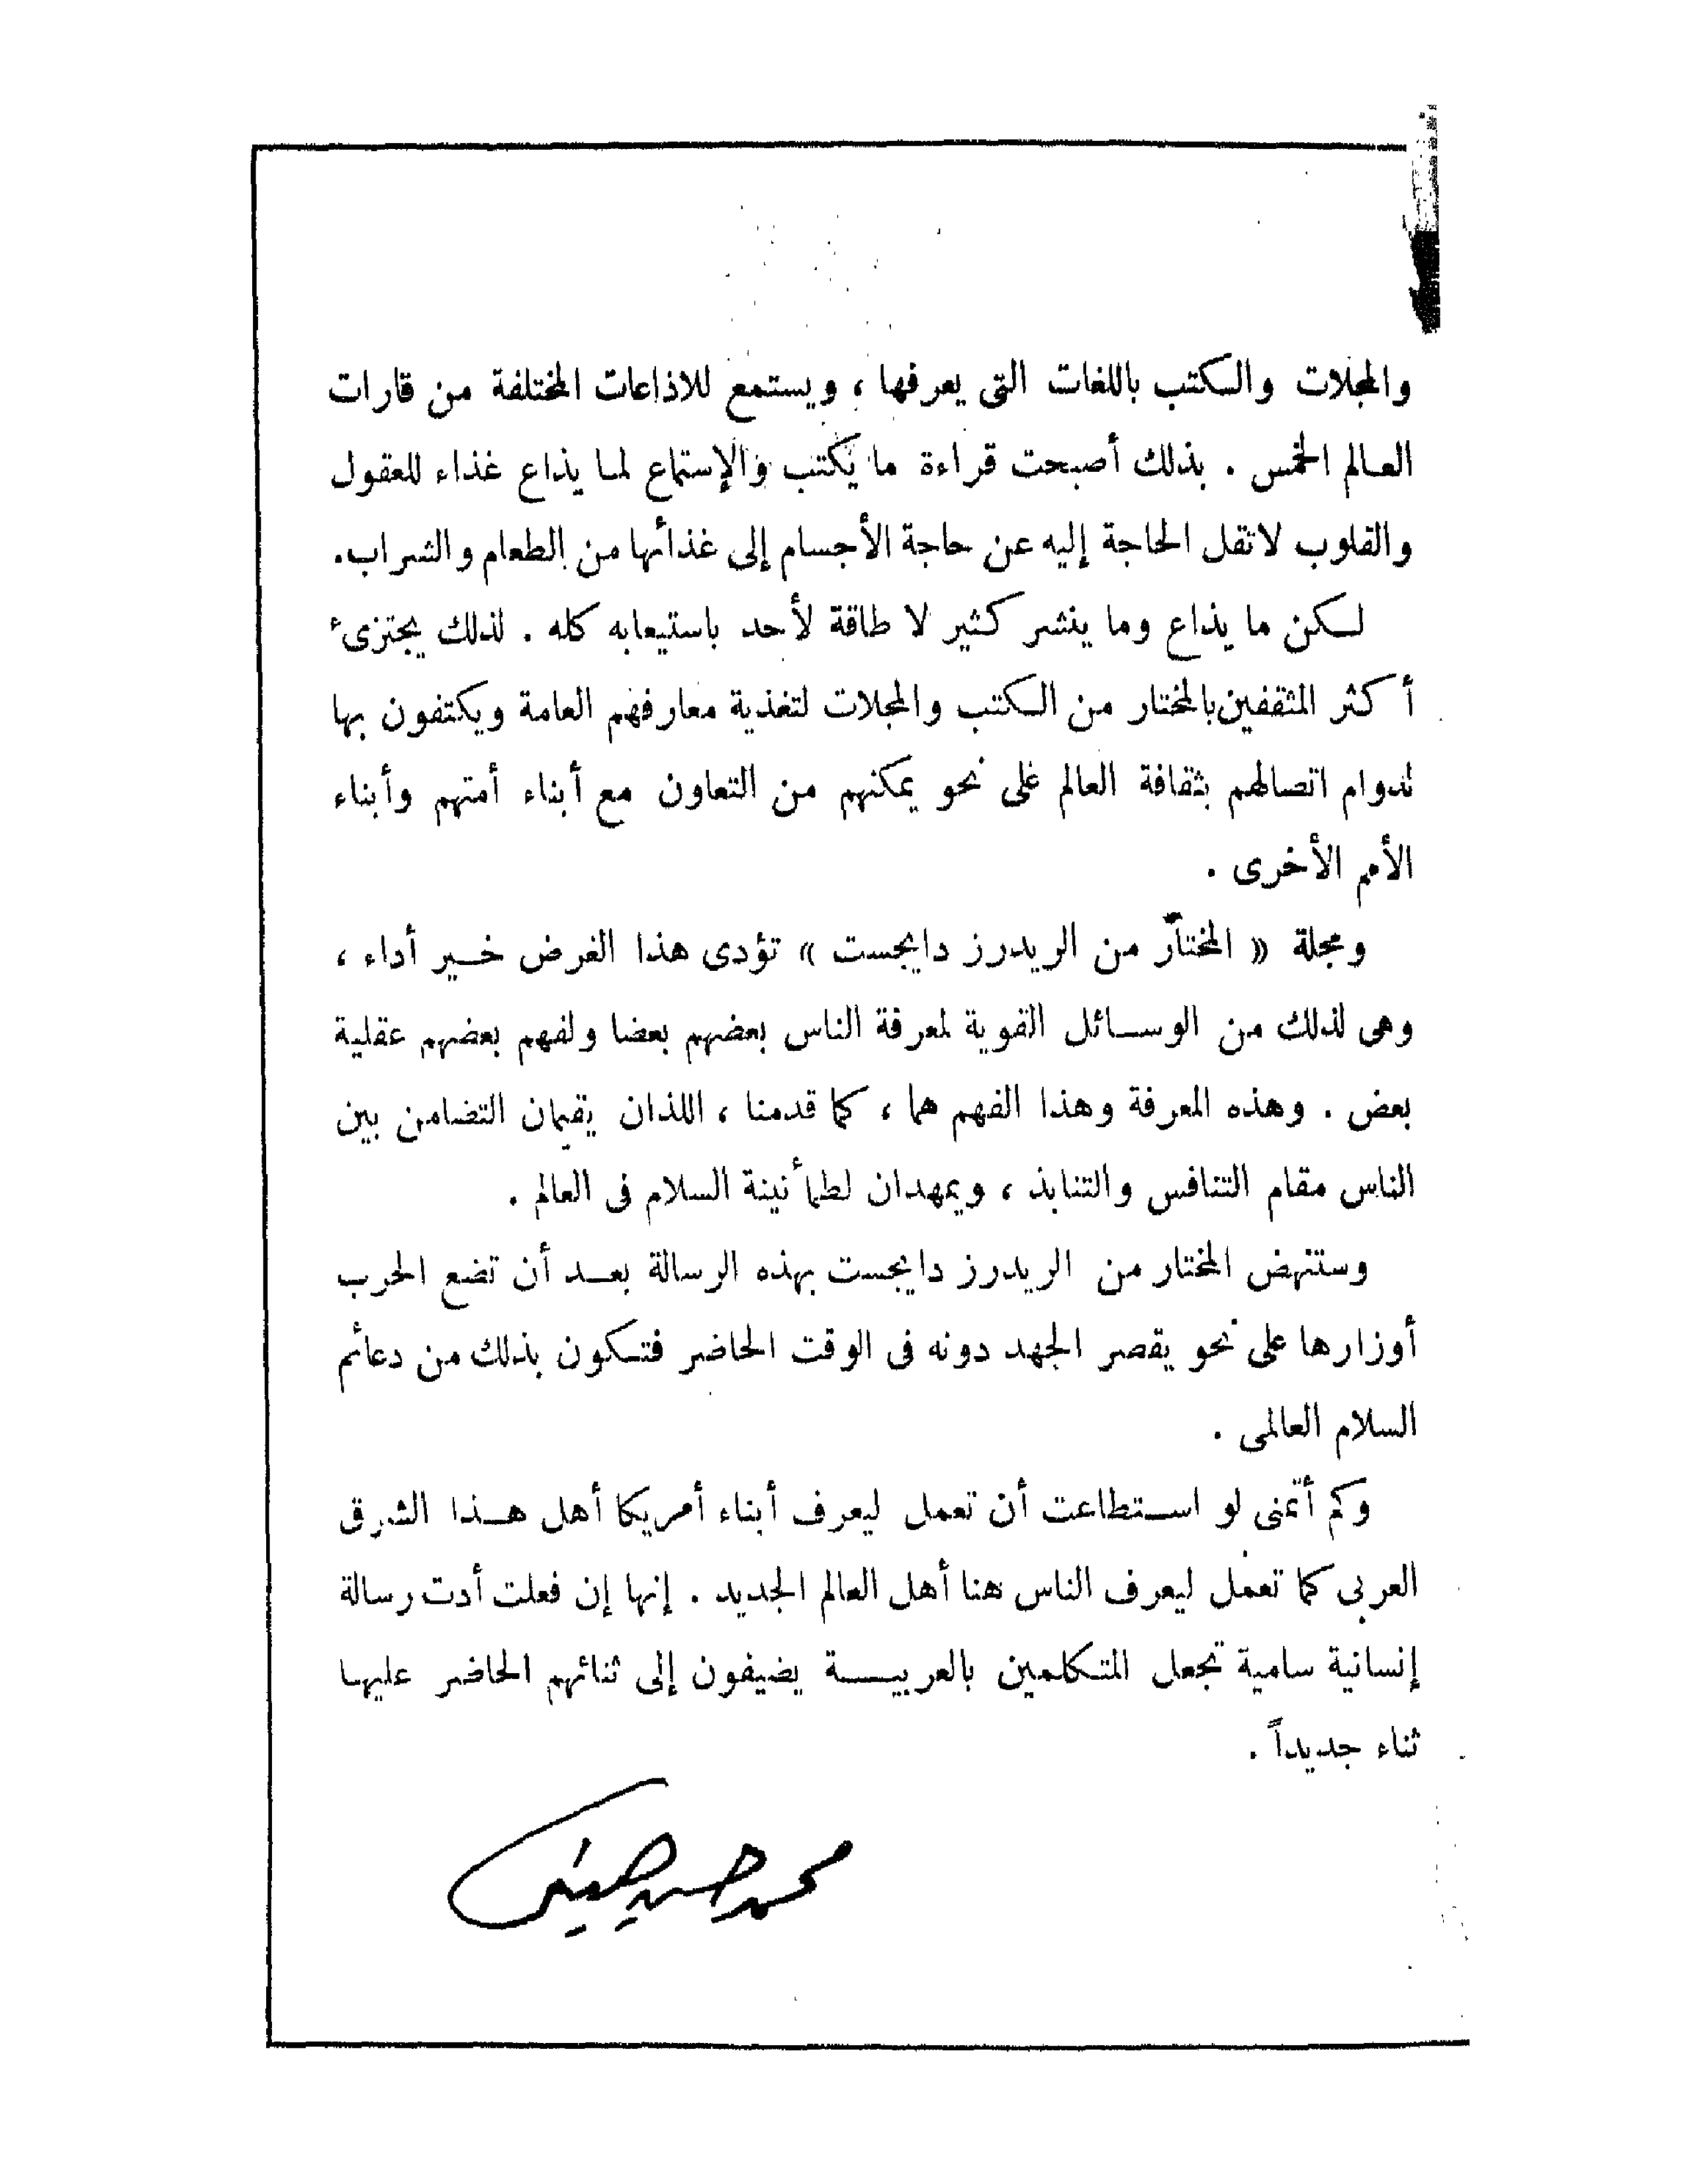 والمجلات والكتب باللغات التى يعرفها ، ويستمع للاذاعات المختلفة من قارات
العالم الخمس . بذلك أصبحت قراءة ما يكتب والإستماع لما يذاع غذاء للعقول
والقلوب لاتقل الحاجة إليه عن حاجة الأجسام إلى غذائها من الطعام والشراب.
لكن ما يذاع وما ينشر كثير لا طاقة لأحد باستيعابه كله . لذلك يجتزىء
أكثر المثقفين بالمختار من الكتب والمجلات لتغذية معارفهم العامة ويكتفون بها
لدوام اتصالهم بثقافة العالم على نحو يمكنهم من التعاون مع أبناء أمتهم وأبناء
الأمم الأخرى .
ومجلة « المختار من الريدرز دايجست » تؤدى هذا الغرض خير أداء ،
وهى لذلك من الوسائل القوية لمعرفة الناس بعضهم بعضا ولفهم بعضهم عقلية
بعض . وهذه المعرفة وهذا الفهم هما ، كما قدمنا ، اللذان يقيمان التضامن بين
الناس مقام التنافس والتنابذ ، ويمهدان لطمأنينة السلام فى العالم .
وستنهض المختار من الريدرز دايجست بهذه الرسالة بعد أن تضع الحرب
أوزارها على نحو يقصر الجهد دونه فى الوقت الحاضر فتكون بذلك من دعائم
السلام العالمى .
وكم أتمنى لو استطاعت أن تعمل ليعرف أبناء أمريكا أهل هذا الشرق
العربى كما تعمل ليعرف الناس هنا أهل العالم الجديد . إنها إن فعلت أدت رسالة
إنسانية سامية تجعل المتكلمين بالعربية يضيفون إلى ثنائهم الحاضر عليها
ثناء جديداً .
محمد حسين هيكل